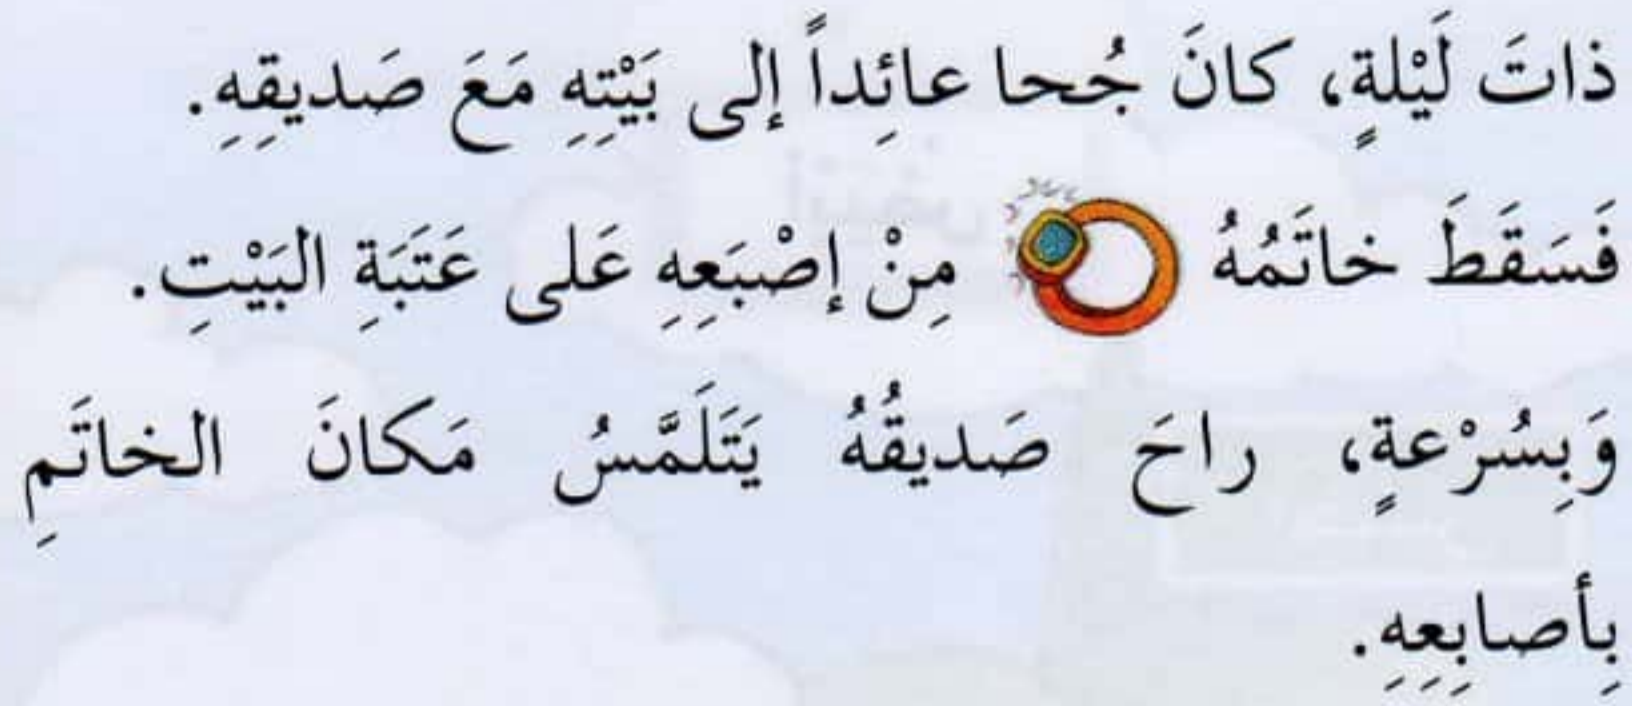 ذاتَ لَيْلةٍ، كانَ جُحا عائِداً إلى بَيْتِهِ مَعَ صَديقِهِ.
فَسَقَطَ خاتَمُهُ مِنْ إصْبَعِهِ عَلى عَتَبَةِ البَيْتِ.
وَبِسُرْعةٍ، راحَ صَديقُهُ يَتَلَمَّسُ مَكانَ الخاتَمِ
بِأصابِعِهِ.